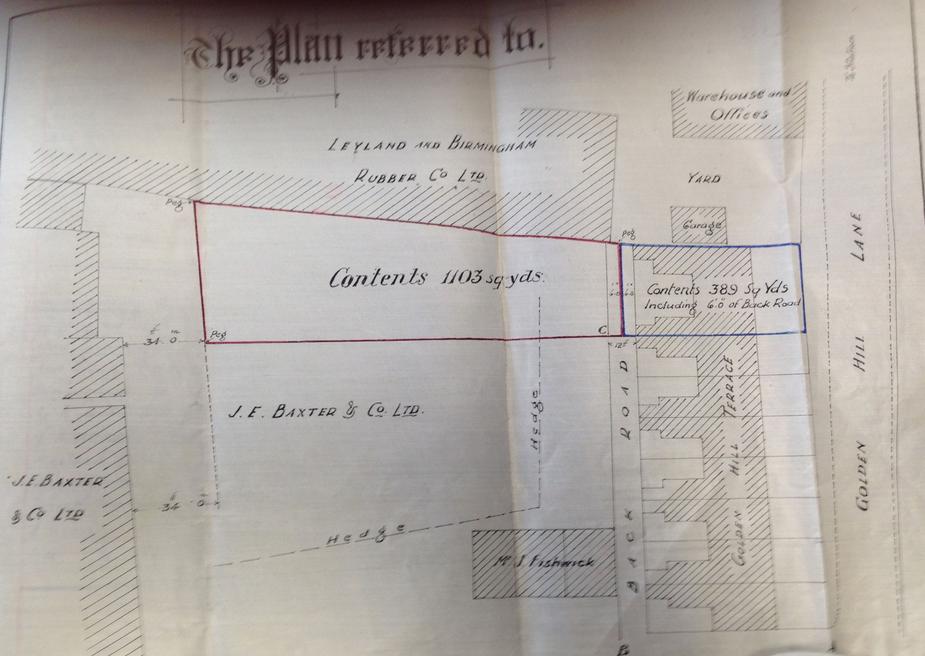 The Plan referred to.
Warehouse and
Offices
LEYLAND AND BIRMINGHAM
RUBBER CO LTD.
YARD
Peg
Garage
Peg
Contents 1103 sq yds.
Contents 389 Sq Yds
Including 6'.0" of Back Road
GOLDEN HILL LANE
C.
Peg
34. 0
12
J. E. BAXTER & CO. LTD.
Hedge
BACK ROAD
GOLDEN HILL TERRACE
J.E. BAXTER
& CO LTD
34. 0
Hedge
Mr J Fishwick
B